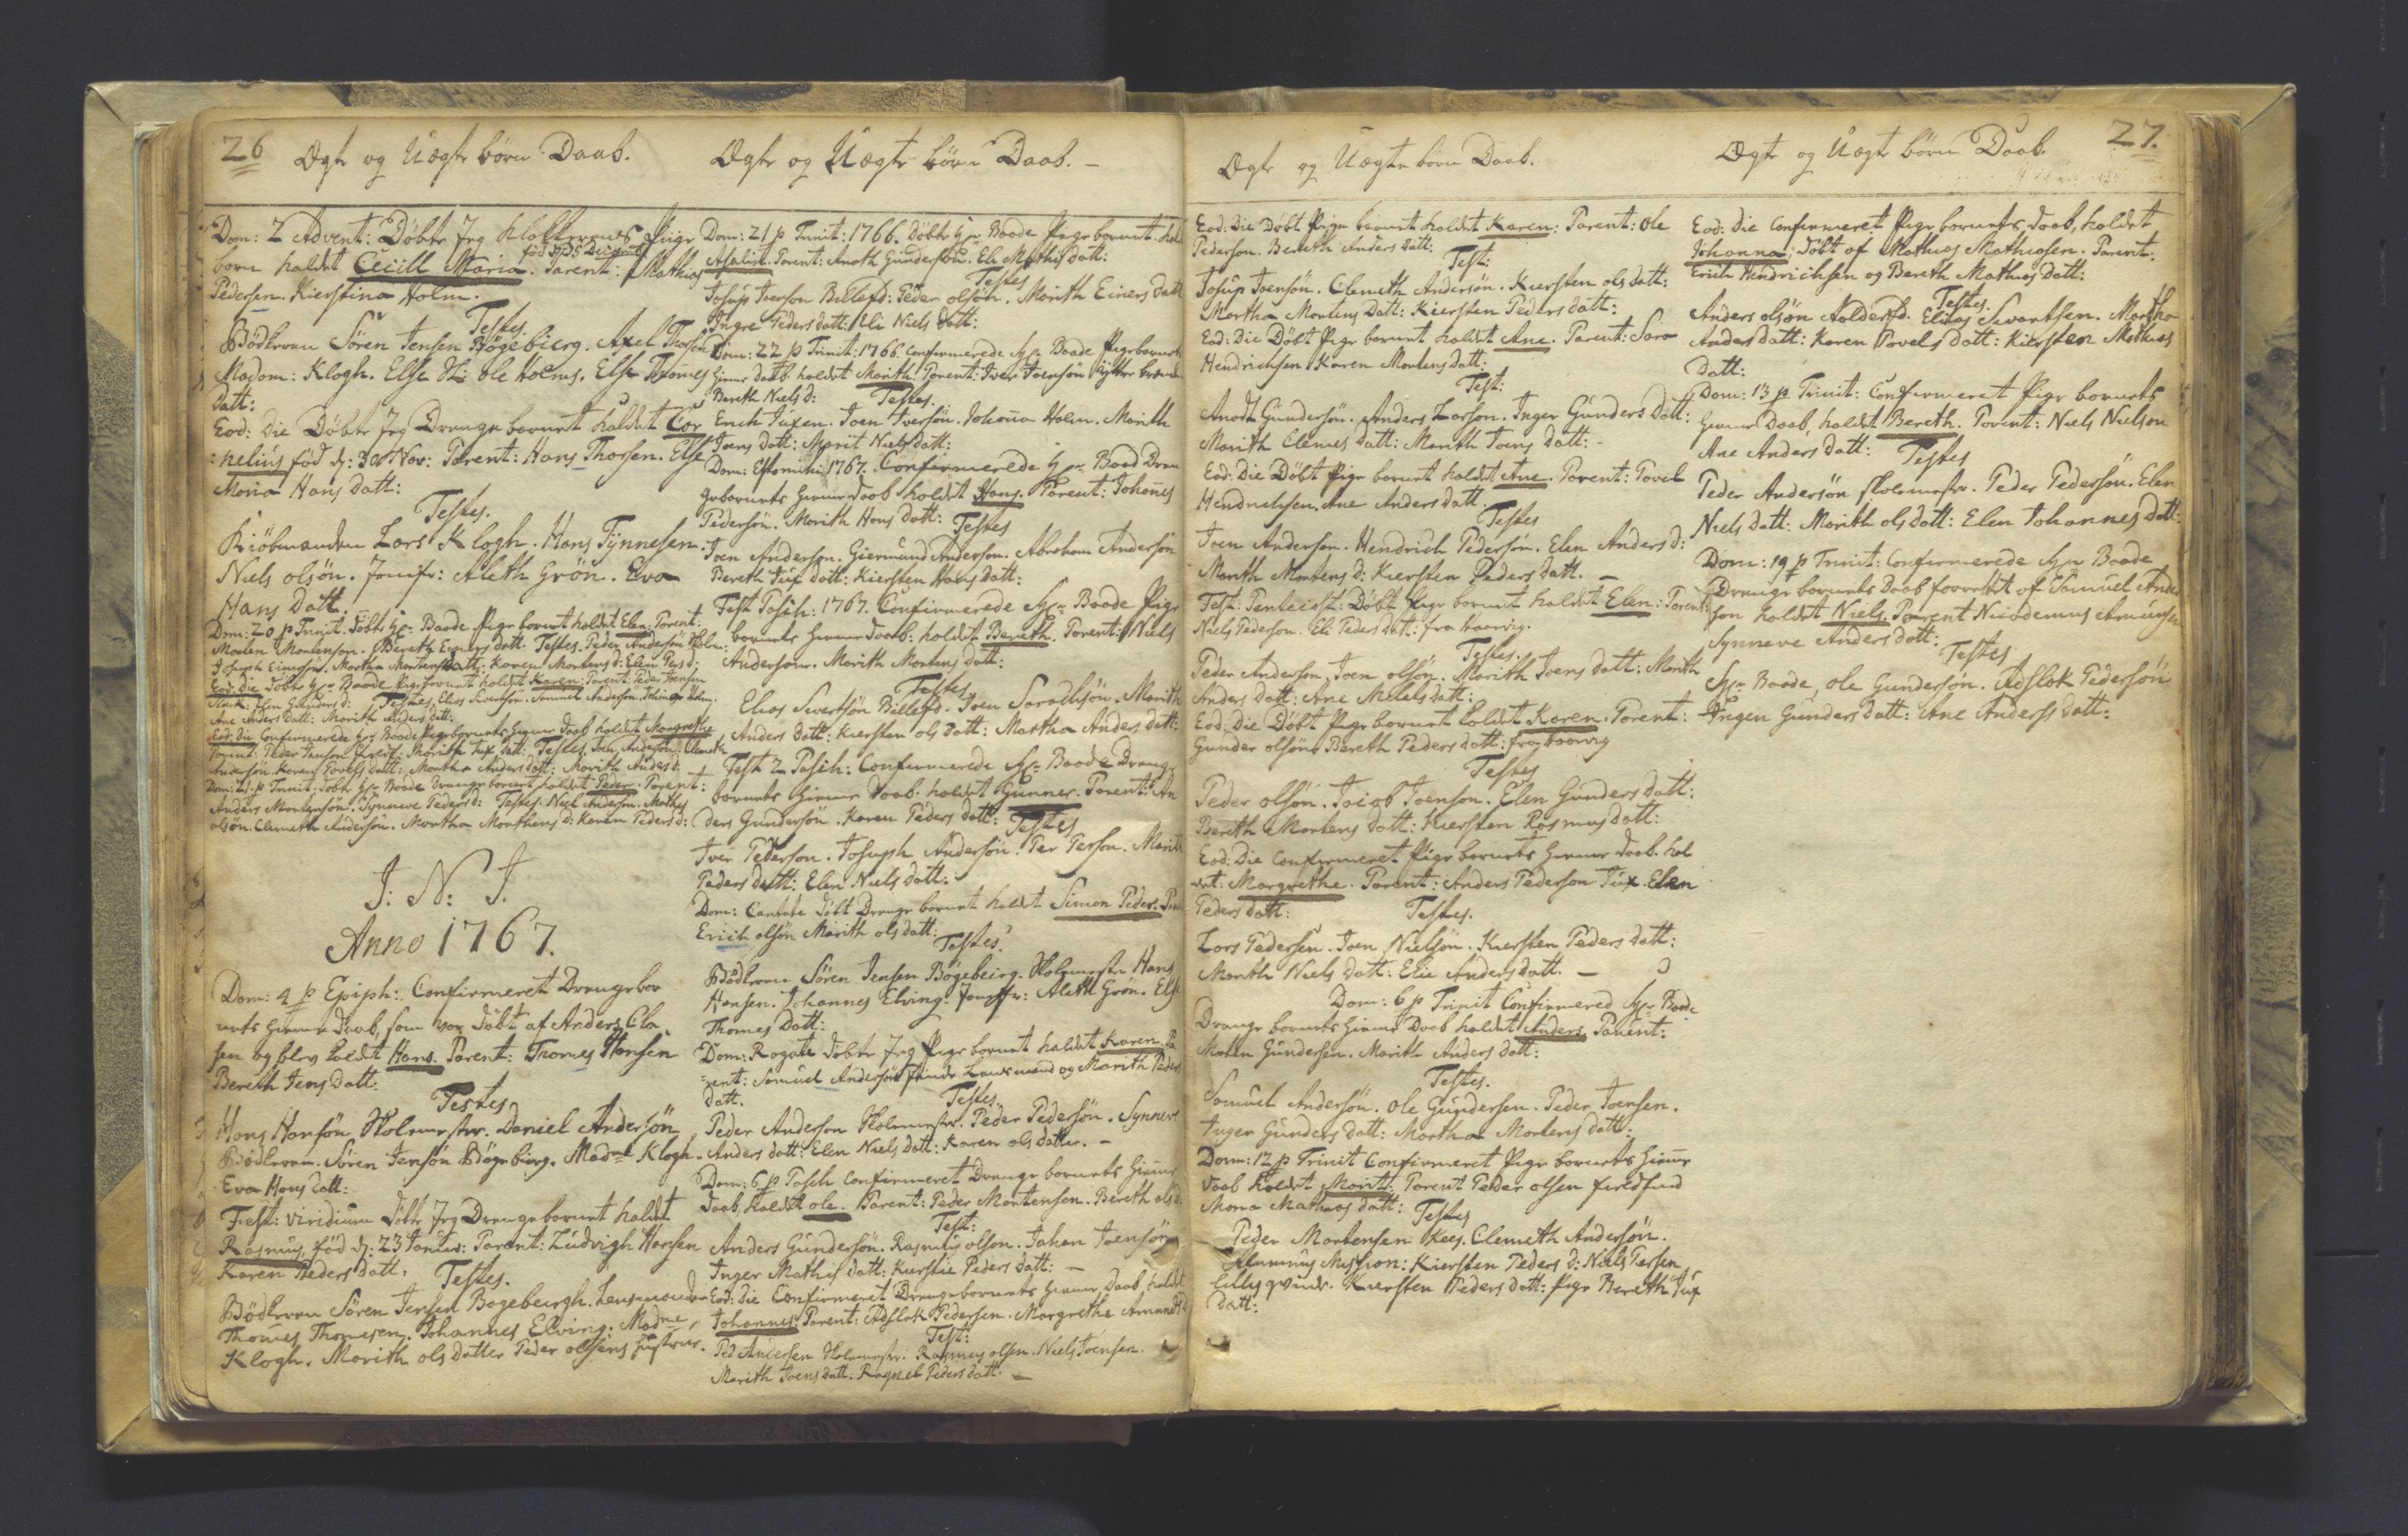 26 Ægte og Uægte börn Daab.
Dom: 2 Advent: Döbte Jeg Klokkerens Pige
född d: 5 Decembr
barn kaldet Cecill Maria. Parent: Mathias
Pedersen. Kierstina Holm.
Testes.
Bödkeren Sören Jensen Bögebierg. Axel Thorsen
Madam: Klogh. Else Sl: ole Holms. Else Thomes
Datt:
Eod: Die Döbte Jeg Drenge barnet kaldet Cor
nelius föd d: 30 Nov: Parent: Hans Thorsen. Else
Maria Hans datt:
Testes.
Kiöbmanden Lars Klogh. Hans Tynnesen.
Niels olsön. Jomfr: Aleth Grön. Eva
Hans Datt.
Dom: 20 p Trinit. Döbte Hr Baade Pige barnet kaldet Elen. Parent:
Morten Mortensen. Bereth Einers datt. Testes. Peder Andersön
Joseph Einersön. Martha Mortensdatt. Karen Mortens d: Elen Pers d:
Eod: Die Döbte Hr Baade Pige barnet kaldet Karen. Parent: Peder Joensen
Elen Gunders d: Testes. Elias Sivertsön. Samuel Andersön
Ane Anders Datt: Marith Anders datt:
Eod: Die Confirmerede Hr Baade Pige barnets hiemme daab kaldet Margrethe
Parent: Peder Jenson. Marith Tux datt: Testes. Joen Anderson. Clemeth
Andersön. Karen Povels datt: Martha Anders datt: Marith Anders d:
Dom: 21. p Trinit: Döbte Hr Baade Drenge barnet kaldet Peder. Parent:
Anders Mortensön. Synneve Peders d: Testes. Niels Andersen. Mathis
olsön. Clemeth Andersön. Martha Morthens d: Karen Peders d:
J: N: J.
Anno 1767.
Dom: 4 p Epiph: Confirmeret Drengebar
nets hiemme Daab, som var Döbt af Anders Cla
sen og blev kaldet Hans. Parent: Thomes Hansen
Bereth Jens datt:
Testes
Hans Hansön Skolemester. Daniel Andersön
Bödkeren. Sören Jensön Bögebierg. Madme Klogh.
Eva Hans Datt:
Fest: Viridium Döbte Jeg Drengebarnet kaldet
Rasmus, föd d: 23 Januar: Parent: Ludvigh Hansen
Karen Peders datt:
Testes.
Bödkeren Sören Jensen Bögebergh. Lensmanden
Thomes Thomesen. Johannes Elving. Madme
Klogh. Marith ols datter Peder olsens hustrue.
Ægte og Uægte börn Daab. –
Dom: 21 p Trinit: 1766. Döbte Hr Baade Pige barnet kal
Parent: Anoth Gundersön. Ele Mathis datt:
Testes
Josup Joenson Billefd: Peder olsön. Marith Einers datt
Ingre Peders datt: Eli Niels datt:
Dom: 22 p Trinit: 1766. Confirmerede Hr Baade Pigebarnets
hiemme daab. kaldet Marith. Parent: Iver Joensön
Bereth Niels d:
Testes.
Erich Tuxen. Joen Iversön. Johanna Holm. Marith
Joens datt: Marit Niels datt:
Dom: Estomihi 1767. Confirmerede Hr Baad Dren
gebarnets hiemme daab kaldet Hans. Parent: Johannes
Pedersön. Marith Hans datt:
Testes
Joen Anderson. Giermund Anderson. Abraham Andersön
Bereth Tux datt: Kiersten Hans datt:
Fest Pasch: 1767. Confirmerede Hr Baade Pige
barnets hiemme daab: kaldet Bereth. Parent: Niels
Anderson. Marith Mortens datt:
Testes.
Elias Sivertsön Billefd. Joen Saralisön. Marith
Anders datt: Kiersten ols Datt: Martha Anders datt:
Fest 2 Pasch: Confirmerede Hr Baade Drenge
barnets hiemme daab. kaldet Gunner. Parent: An
ders Gundersön. Karen Peders datt:
Testes
Iver Pederson. Joseph Andersön. Per Person. Marith
Peders datt: Elen Niels datt.
Dom: Cantate Döbt Drenge barnet kaldet Simon Peder. Par
Erich olsön Marith ols datt:
Testes.
Bödkeren Sören Jensen Bögebeirg. Skolemester Hans
Hansen. Johannes Elving. Jomfr: Aleth Grön. Else
Thomes Datt:
Dom: Rogate Döbte Jeg Pige barnet kaldet Karen. Pa
rent: Samuel Andersön Lensmand og Marith Peders
datt.
Testes.
Peder Anderson Skolemester. Peder Pedersön. Synneve
Anders datt: Elen Niels datt: Karen ols datter. –
Dom: 6 p Pasch Confirmeret Drenge barnets hiemme
daab, kaldet ole. Parent: Peder Mortensen. Bereth ols d:
Test:
Anders Gundersön. Rasmus olson. Johan Joensön
Inger Mathis datt: Kierstie Peders datt: –
Eod: Die Confirmeret Drengebarnets hiemme Daab, kaldet
Johannes. Parent: Adslak Pedersen. Margrethe Amunds d
Test:
Ped Andersen Skolemester. Rasmus olsen. Niels Joensen.
Marith Joens datt. Ragnel Peders datt. –
Ægte og Uægte börn Daab.
Eod: Die Döbt Pige barnet kaldet Karen. Parent: ole
Pederson. Bereth Anders datt:
Test:
Josup Joensön. Clemeth Andersön. Kiersten ols datt:
Martha Mortens Datt: Kiersten Peders datt:
Eod: Die Döbt Pige barnet kaldet Ane. Parent: Sara
Hendrichsen Karen Mortens datt:
Test:
Anodt Gundersön. Anders Larson. Inger Gunders datt:
Marith Clemes datt: Marith Joens datt: –
Eod: Die Döbt Pige barnet kaldet Ane. Parent: Povel
Hendrichsen, Ane Anders datt
Testes
Joen Anderson. Hendrich Pedersön. Elen Anders d:
Marith Mortens d: Kiersten Peders datt. –
Fest: Pentecost: Döbt Pige barnet kaldet Elen: Parent:
Niels Pederson. Eli Peders datt: fra
Testes.
Peder Anderson, Joen olsön. Marith Joens datt: Marith
Anders datt: Ane Mikels datt:
Eod: Die Döbt Pige barnet kaldet Karen. Parent:
Gunder olsön, Bereth Peders datt: fra
Testes
Peder olsön. Jacob Joenson. Elen Gunders datt:
Bereth Mortens datt: Kiersten Rasmus datt:
Eod: Die Confirmeret Pige barnets hiemme daab. kal
det: Margrethe. Parent: Anders Pederson Tux. Elen
Peders datt:
Testes.
Lars Pedersen. Joen Nielsön. Kiersten Peders datt:
Marith Niels datt: Elie Anders datt. –
Dom: 6 p Trinit Confirmered Hr Baade
Drenge barnets hiemme Daab kaldet Anders Parent:
Morten Gundersen. Marith Anders datt:
Testes.
Samuel Andersön. ole Gundersen. Peder Joensen.
Inger Gunders datt: Martha Mortens datt:
Dom: 12 p Trinit Confirmeret Pige barnets hiemme
daab kaldet Marit. Parent Peder olsen
Maria Mathias datt:
Testes
Peder Mortensen Clemeth Andersön.
Kiersten Peders d: Niels Persen
Kiersten Peders datt: Pige Bereth Tux
datt:
Ægte og Uægte börn Daab. 27.
Eod: die Confirmeret Pige barnets daab, kaldet
Johanna, Döbt af Mathias Mathiasen. Parent:
Erich Hendrichsen og Bereth Mathias datt:
Testes.
Anders olsön Elias Sivartsen. Martha
Anders datt: Karen Povels datt: Kiersten Mathias
datt:
Dom: 13 p Trinit: Confirmeret Pige barnets
hiemme Daab, kaldet Bereth. Parent: Niels Nielson
Ane Anders datt:
Testes
Peder Andersön skolemester. Peder Pedersön. Elen
Niels datt: Marith ols datt: Elen Johannes datt:
Dom: 19 p Trinit: Confirmerede Hr Baade
Drenge barnets Daab forrettet af Samuel Ander
son kaldet Niels. Parent Nicodemus Amunsen
Synneve Anders datt:
Testes
Hr Baade, ole Gundersön. Adslak Pedersön
Ingen Gunders datt: Ane Anderss datt: